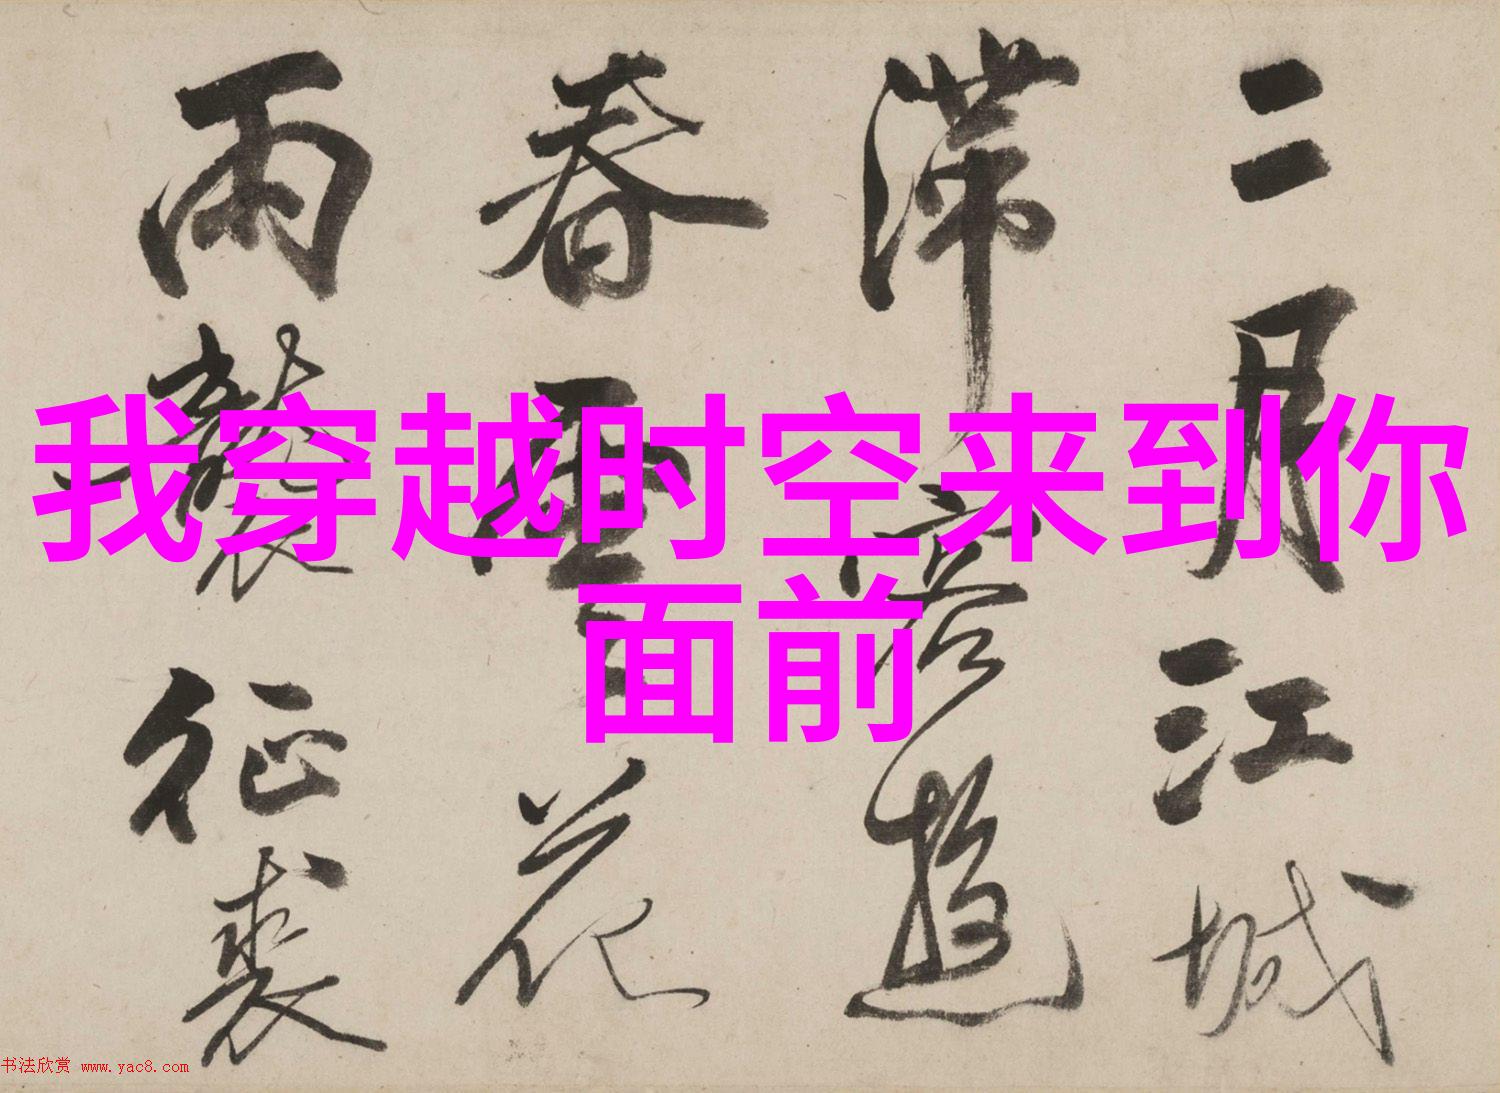 我穿越时空来到你
面前
二月江城
滞客遊
春花
雨襲征裘
书法欣赏 www.yac8.com